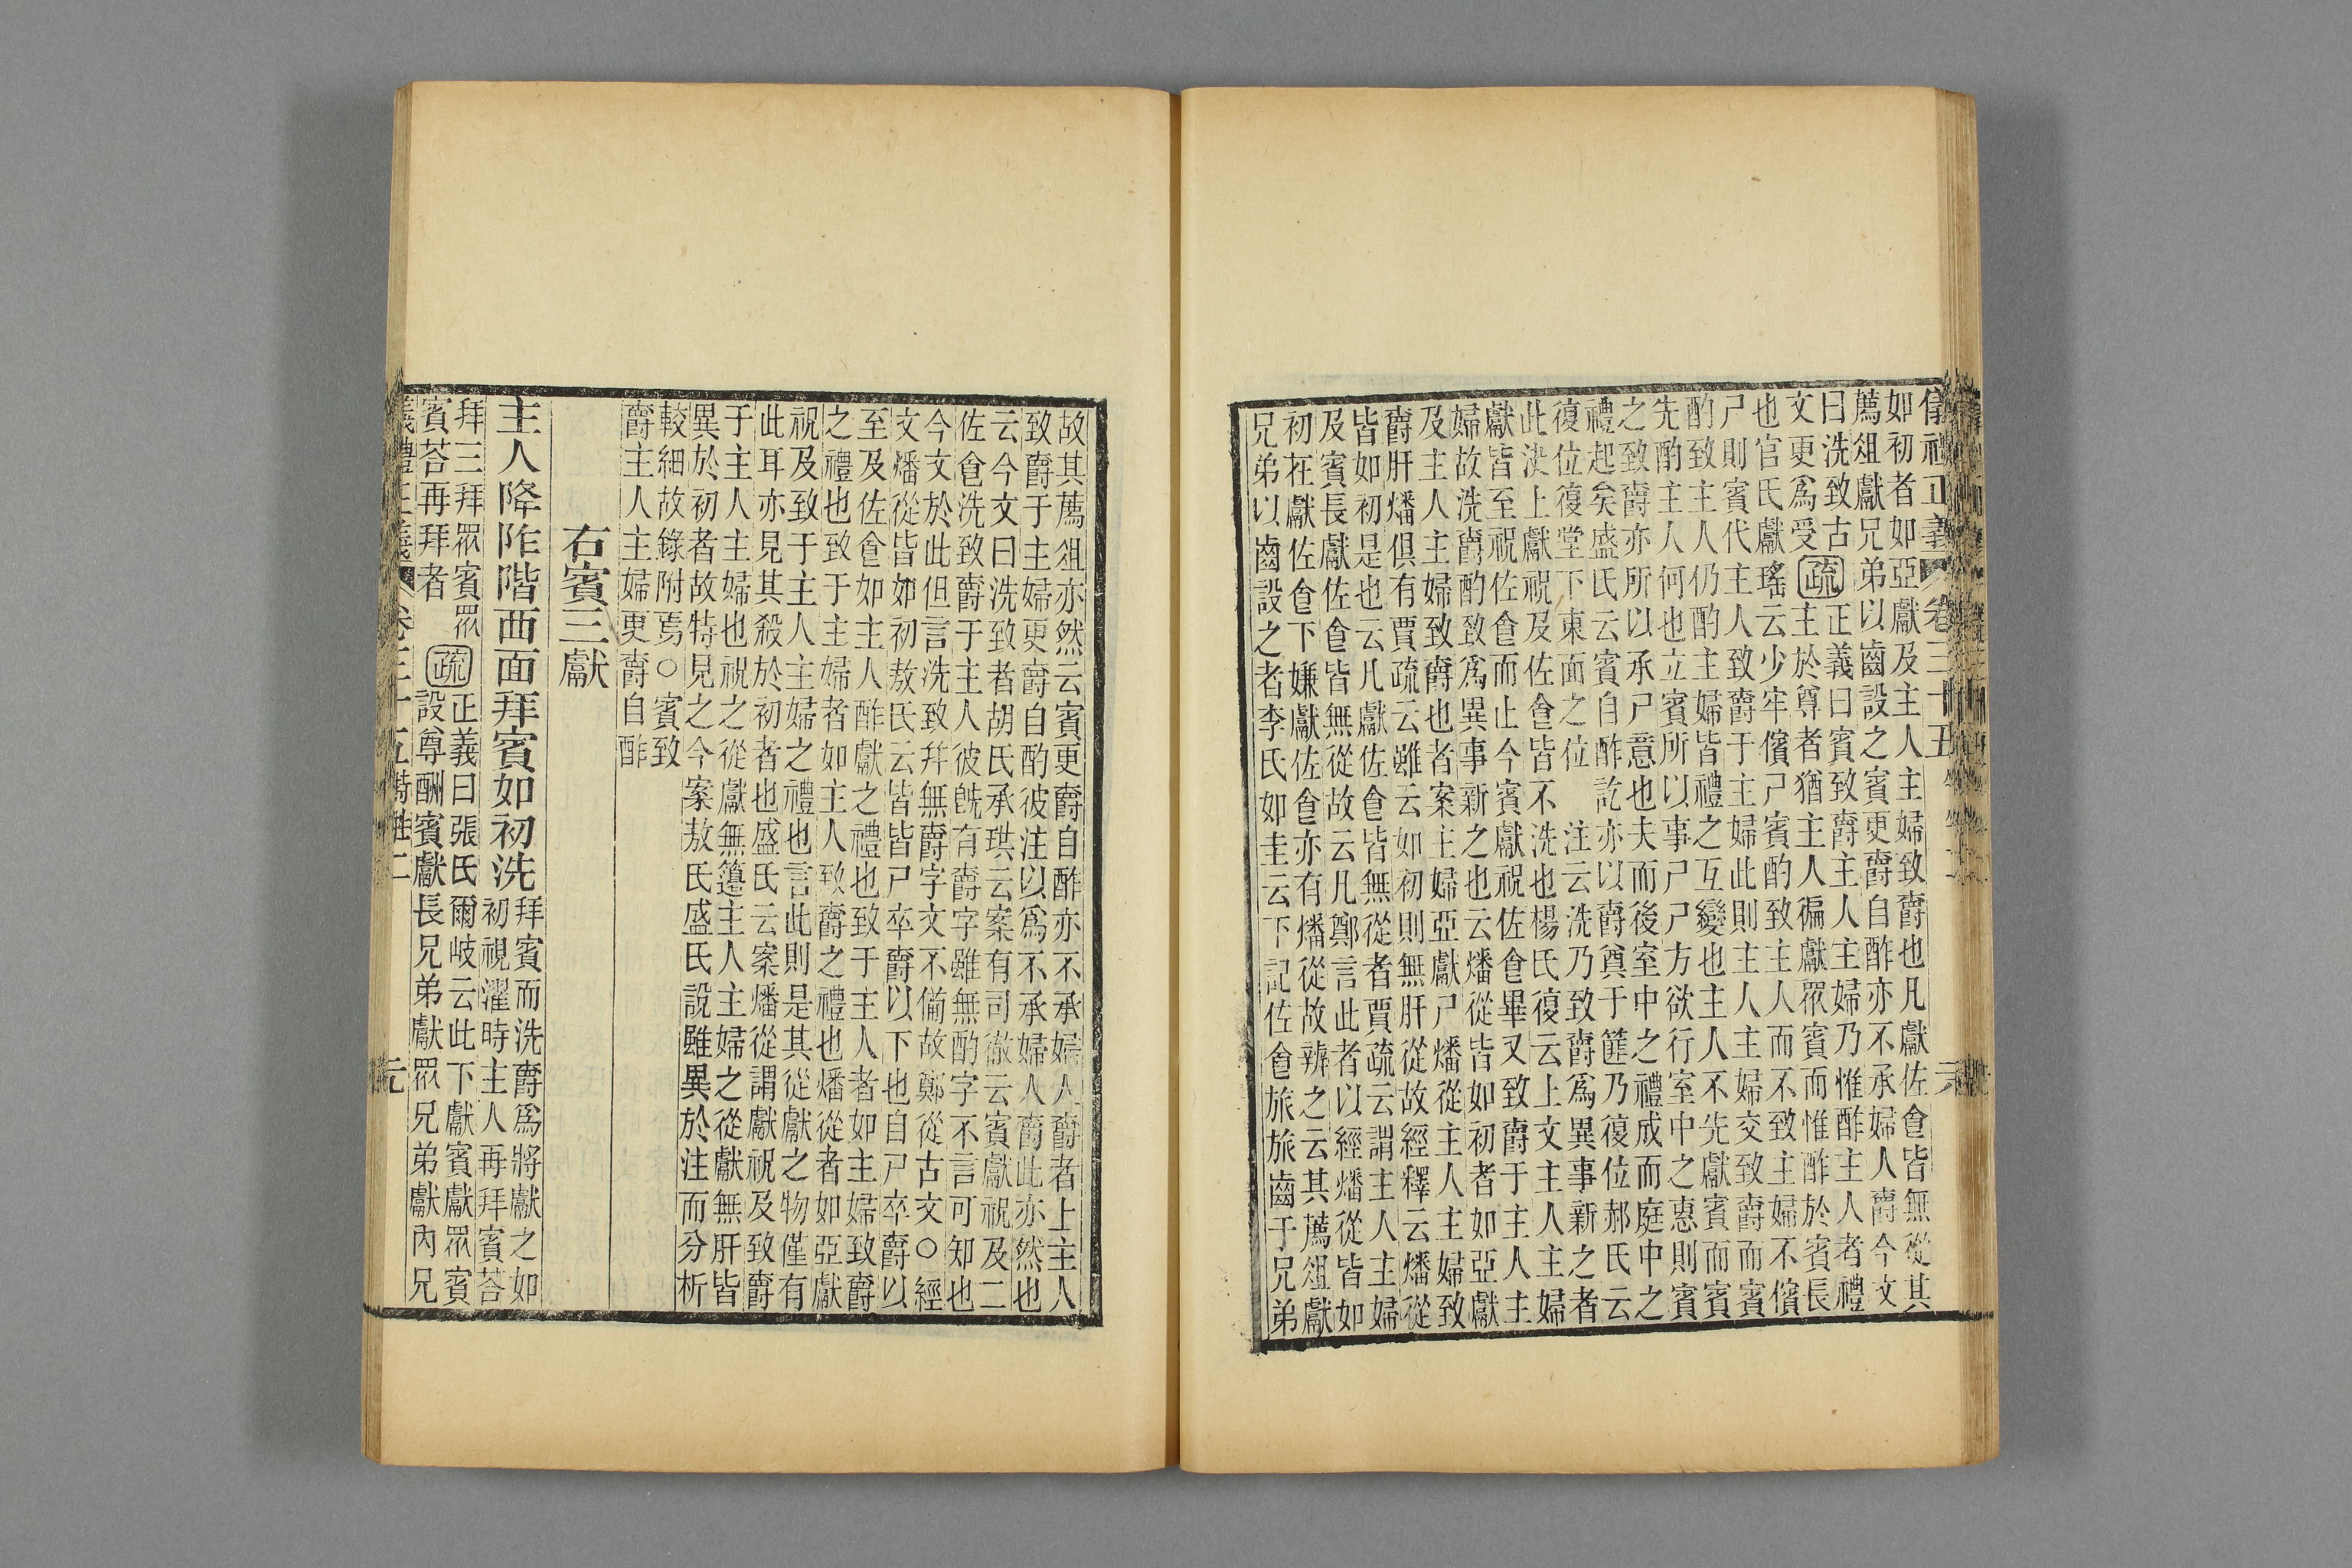 儀禮正義 卷三十五 特牲二 六
如初者如亞獻及主人主婦致爵也凡獻佐食皆無從其
薦俎獻兄弟以齒設之賓更爵自酢亦不承婦人爵今文
曰洗致古 疏 正義曰賓致爵主人主婦乃惟酢主人者禮
文更爲受 主於尊者猶主人徧獻眾賓而惟酢於賓長
也官氏獻瑤云少牢儐尸賓酌致主人而不致主婦不儐
尸則賓代主人致爵于主婦此則主人主婦交致爵而賓
酌致主人仍酌主婦皆禮之互變也主人不先獻賓而賓
先酌主人何也立賓所以事尸尸方欲行室中之惠則賓
之致爵亦所以承尸意也夫而後室中之禮成而庭中之
禮起矣盛氏云賓自酢訖亦以爵奠于篚乃復位郝氏云
復位復堂下東面之位 注云洗乃致爵爲異事新之者
此決上獻祝及佐食皆不洗也楊氏復云上文主人主婦
獻皆至祝佐食而止今賓獻祝佐食畢又致爵于主人主
婦故洗爵酌致爲異事新之也云燔從皆如初者如亞獻
及主人主婦致爵也者案主婦亞獻尸燔從主人主婦致
爵肝燔俱有賈疏云雖云如初則無肝從故經釋云燔從
皆如初是也云凡獻佐食皆無從者賈疏云謂主人主婦
及賓長獻佐食皆無從故云凡鄭言此者以經燔從皆如
初在獻佐食下嫌獻佐食亦有燔從故辨之云其薦俎獻
兄弟以齒設之者李氏如圭云下記佐食旅旅齒于兄弟
故其薦俎亦然云賓更爵自酢亦不承婦人爵者上主人
致爵于主婦更爵自酌彼注以爲不承婦人爵此亦然也
云今文曰洗致者胡氏承珙云案有司徹云賓獻祝及二
佐食洗致爵于主人彼旣有爵字雖無酌字不言可知也
今文於此但言洗致幷無爵字文不備故鄭從古文○經
文燔從皆如初敖氏云皆皆尸卒爵以下也自尸卒爵以
至及佐食如主人酢獻之禮也致于主人者如主婦致爵
之禮也致于主婦者如主人致爵之禮也燔從者如亞獻
祝及致于主人主婦之禮也言此則是其從獻之物僅有
此耳亦見其殺於初者也盛氏云案燔從謂獻祝及致爵
于主人主婦也祝之從獻無籩主人主婦之從獻無肝皆
異於初者故特見之今案敖氏盛氏說雖異於注而分析
較細故錄附焉○賓致
爵主人主婦更爵自酢
右賓三獻
主人降阼階西面拜賓如初洗
拜賓而洗爵爲將獻之如
初視濯時主人再拜賓荅
拜三拜眾賓眾
賓荅再拜者
疏
正義曰張氏爾岐云此下獻賓獻眾賓
設尊酬賓獻長兄弟獻眾兄弟獻內兄
儀禮正義 卷三十五 特牲二 元